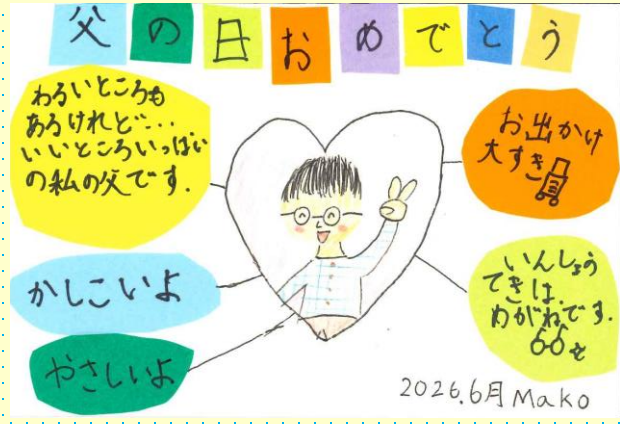 父の日おめでとう
わるいところも
あるけれど…
いいところいっぱい
の私の父です.
お出かけ
大すき
かしこいよ
いんしょう
てきは、
めがねです.
やさしいよ
2026.6月 Mako